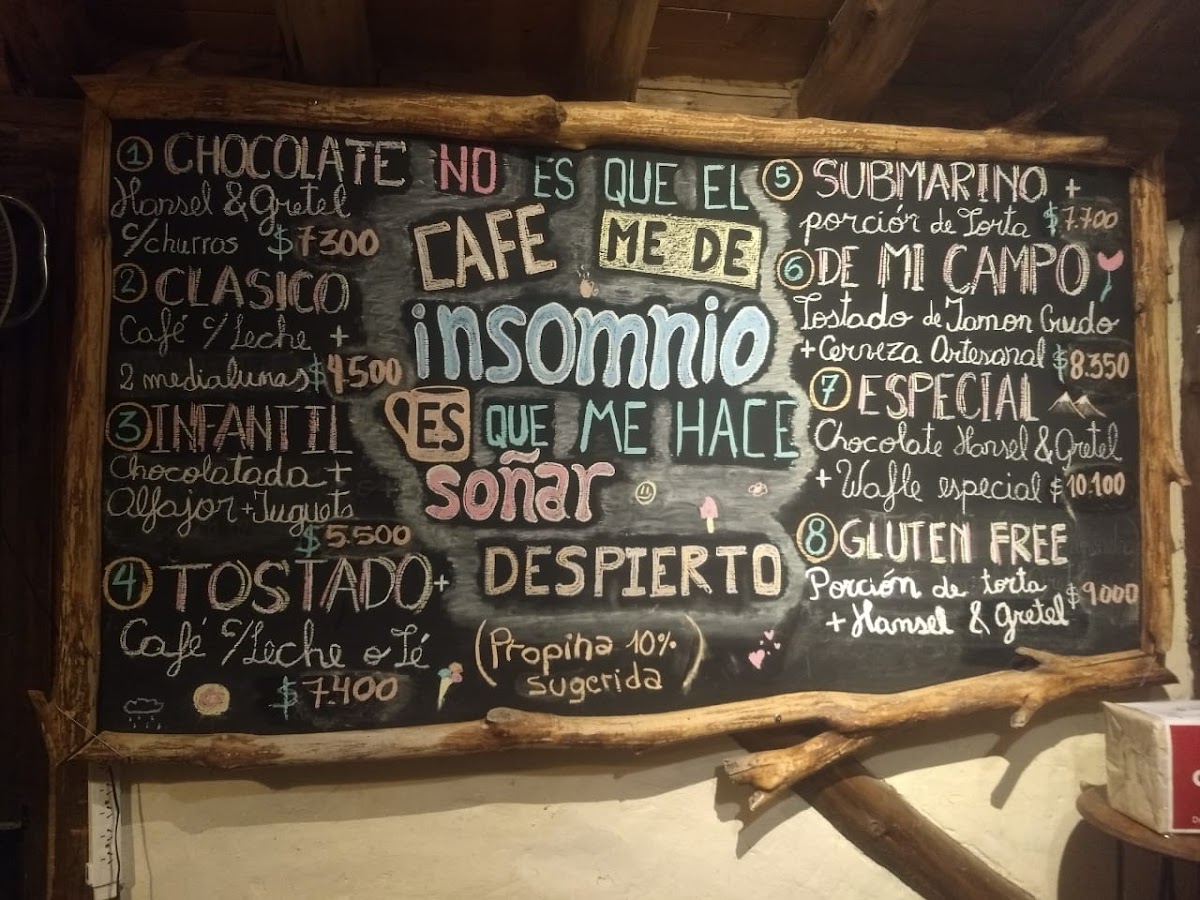 ① CHOCOLATE
Hansel & Gretel
c/churros $7300
② CLASICO
Café c/Leche +
2 medialunas $4500
③ INFANTIL
Chocolatada +
Alfajor + Juguete
$5.500
④ TOSTADO +
Café c/Leche o Té
$7.400
NO ES QUE EL
CAFE ME DE
insomnio
ES QUE ME HACE
soñar
DESPIERTO
(Propina 10%
sugerida)
⑤ SUBMARINO +
porción de Torta $7.700
⑥ DE MI CAMPO
Tostado de Jamon Crudo
+ Cerveza Artesanal $8.350
⑦ ESPECIAL
Chocolate Hansel & Gretel
+ Wafle especial $10.100
⑧ GLUTEN FREE
Porción de torta
+ Hansel & Gretel $9.000